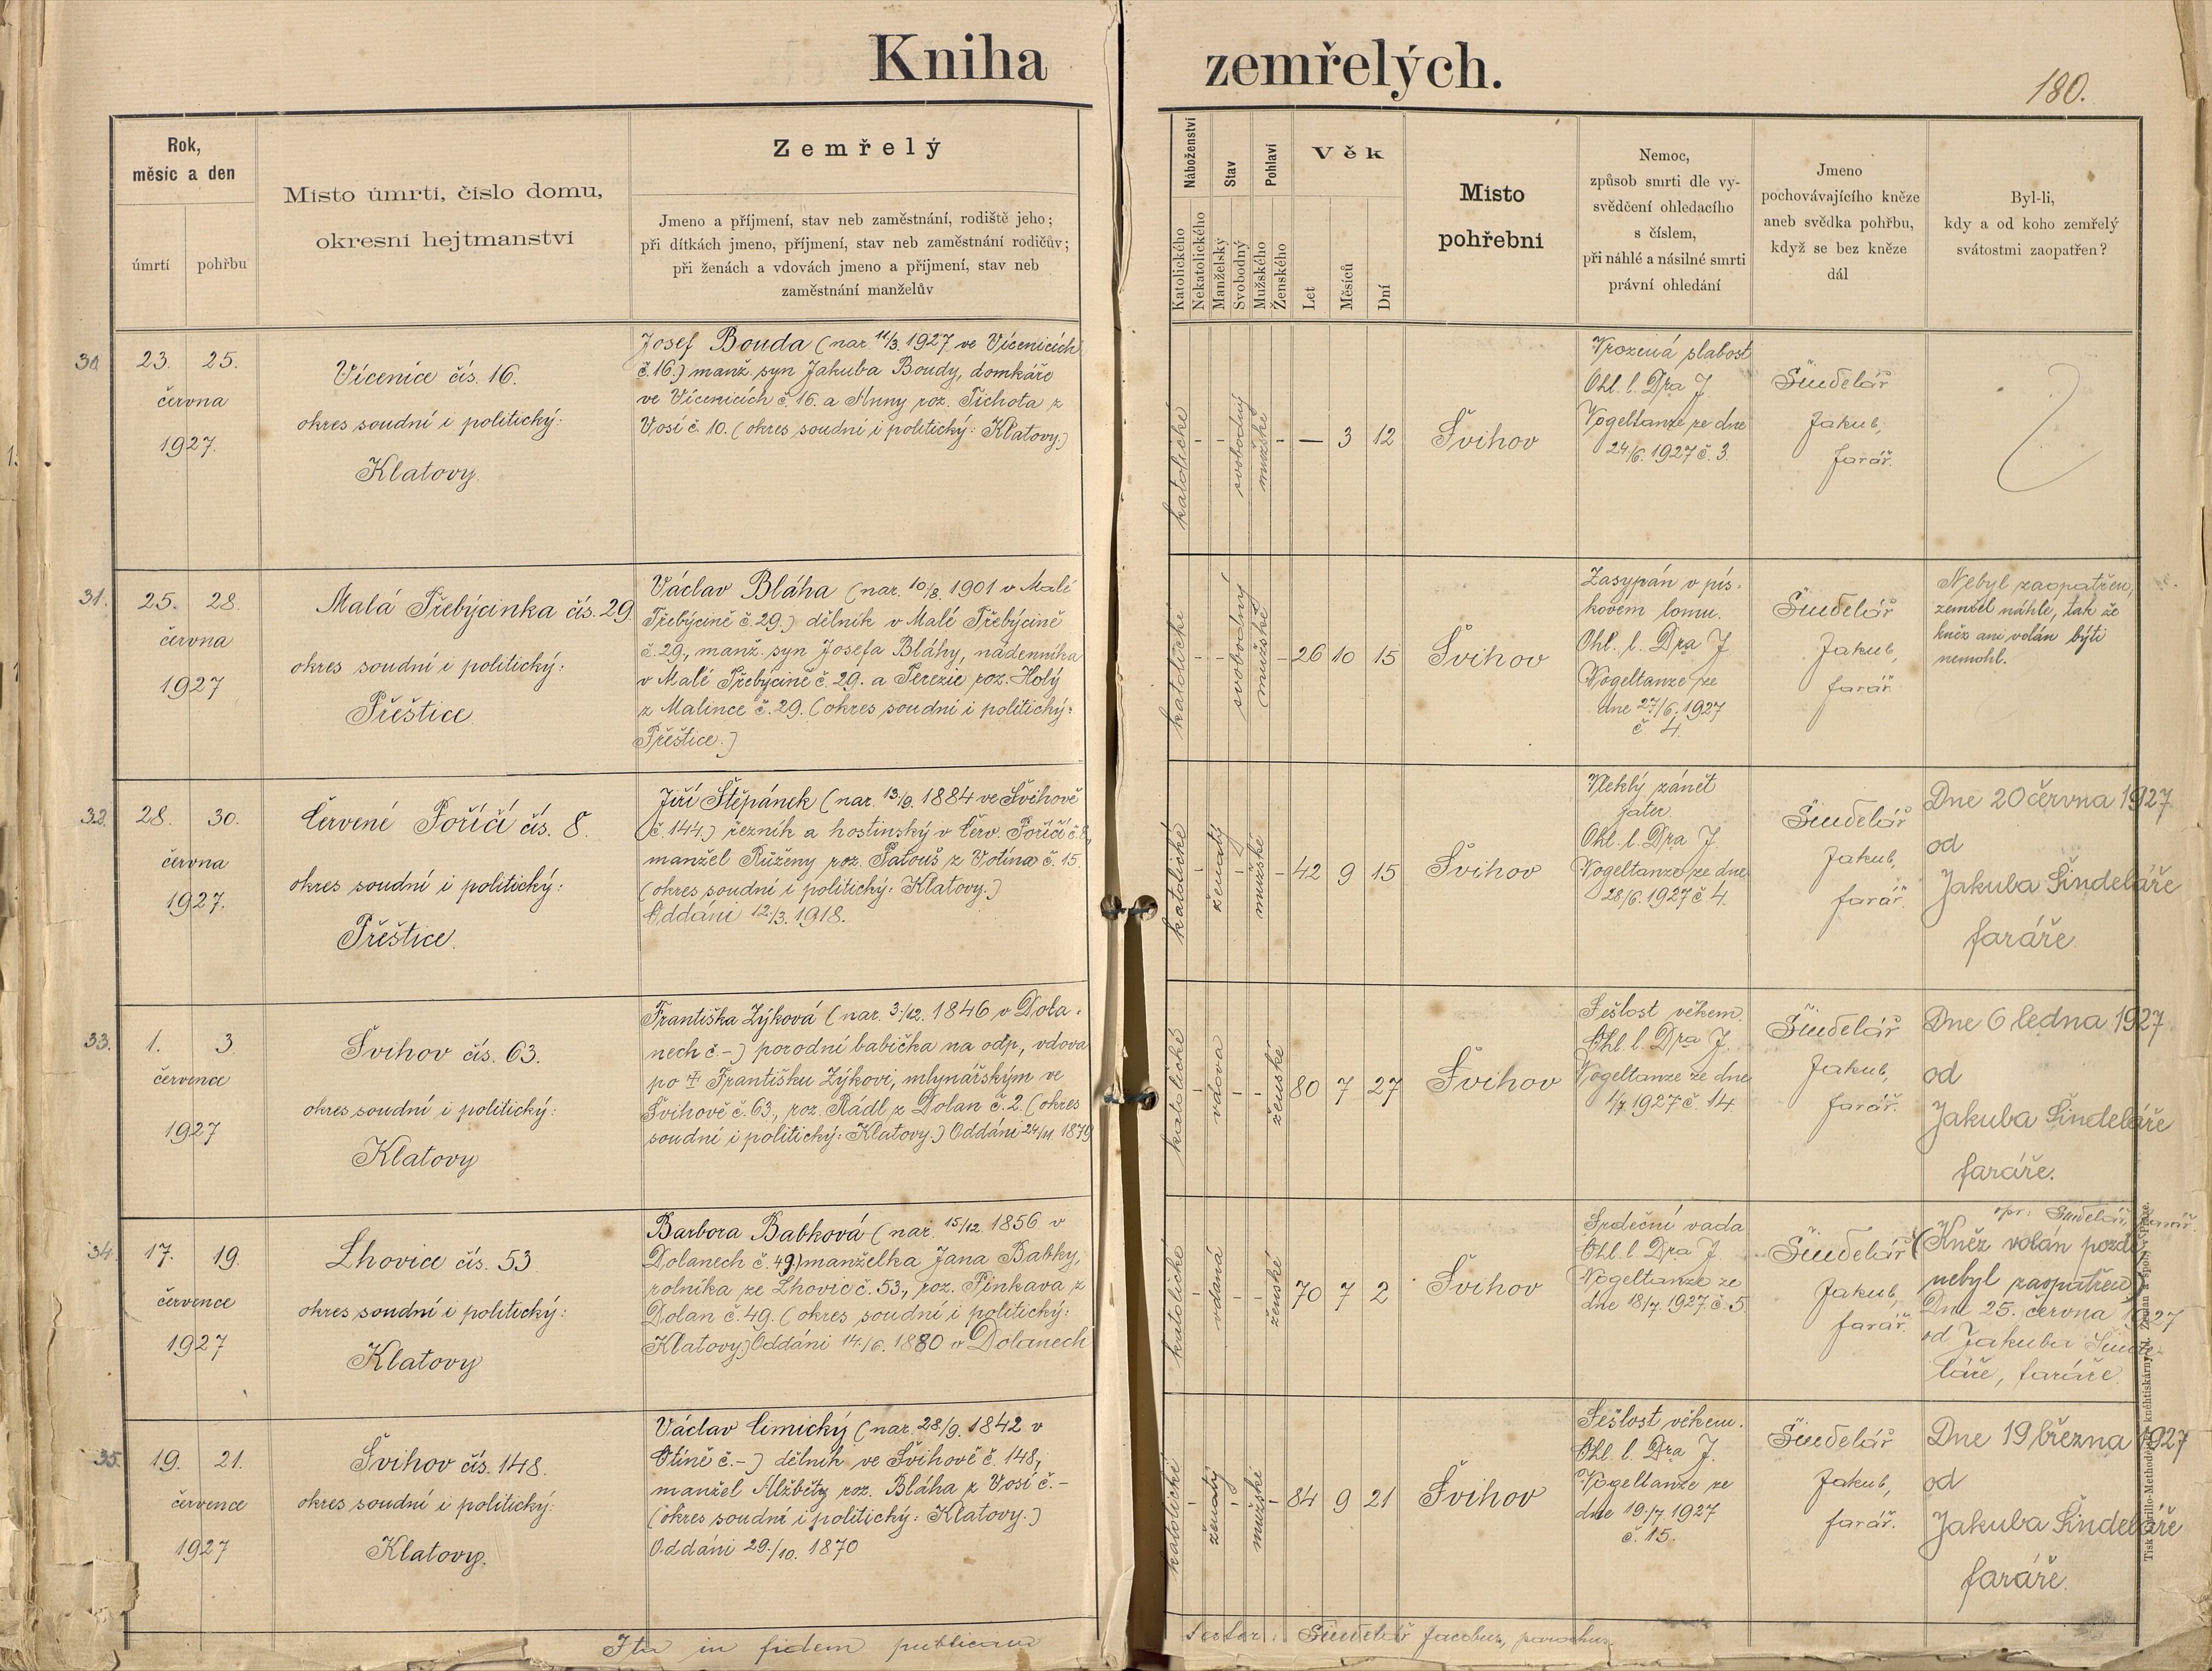 Kniha zemřelých.
180.
Rok,
měsíc a den
úmrtí
pohřbu
Místo úmrtí, číslo domu,
okresní hejtmanství
Zemřelý
Jmeno a příjmení, stav neb zaměstnání, rodiště jeho;
při dítkách jmeno, příjmení, stav neb zaměstnání rodičův;
při ženách a vdovách jmeno a příjmení, stav neb
zaměstnání manželův
Náboženství
Katolického
Nekatolického
Stav
Manželský
Svobodný
Pohlaví
Mužského
Ženského
Věk
Let
Měsíců
Dní
Místo
pohřební
Nemoc,
způsob smrti dle vy-
svědčení ohledacího
s číslem,
při náhlé a násilné smrti
právní ohledání
Jmeno
pochovávajícího kněze
aneb svědka pohřbu,
když se bez kněze
dál
Byl-li,
kdy a od koho zemřelý
svátostmi zaopatřen?
30
23. 25.
června
1927.
Vícenice čís. 16.
okres soudní i politický:
Klatovy.
Josef Bouda (nar. 11/3. 1927 ve Vícenicích
č. 16.) manž. syn Jakuba Boudy, domkáře
ve Vícenicích č. 16. a Anny roz. Tichota z
Vosí č. 10. (okres soudní i politický: Klatovy.)
katolické
-
-
svobodný
mužské
-
— 3 12
Švihov
Vrozená slabost
Ohl. l. Dra J.
Vogeltanze ze dne
24/6. 1927 č. 3.
Šindelář
Jakub,
farář.
31.
25. 28.
června
1927
Malá Třebýcinka čís. 29
okres soudní i politický:
Přeštice.
Václav Bláha (nar. 10/8. 1901 v Malé
Třebýcině č. 29.) dělník v Malé Třebýcině
č. 29., manž. syn Josefa Bláhy, nádenníka
v Malé Třebýcině č. 29. a Terezie roz. Holý
z Malince č. 29. (okres soudní i politický:
Přeštice.)
katolické
-
-
svobodný
mužské
-
26 10 15
Švihov
Zasypán v pís-
kovém lomu.
Ohl. l. Dra J.
Vogeltanze ze
dne 27/6. 1927
č. 4.
Šindelář
Jakub,
farář
Nebyl zaopatřen,
zemřel náhle, tak že
kněz ani volán býti
nemohl.
32.
28. 30.
června
1927.
Červené Poříčí čís. 8.
okres soudní i politický:
Přeštice.
Jiří Štěpánek (nar. 13./9. 1884 ve Švihově
č. 144.) řezník a hostinský v Červ. Poříčí č. 8,
manžel Růženy roz. Patouš z Votína č. 15.
(okres soudní i politický: Klatovy.)
Oddáni 12./3. 1918.
katolické
-
ženatý
-
mužské
-
42 9 15
Švihov
Vleklý zánět
jater.
Ohl. l. Dra J.
Vogeltanze ze dne
28/6. 1927 č. 4.
Šindelář
Jakub,
farář.
Dne 20 června 1927
od
Jakuba Šindeláře
faráře.
33.
1. 3.
července
1927
Švihov čís. 63.
okres soudní i politický:
Klatovy
Františka Zýková (nar. 3./12. 1846 v Dola-
nech č. -) porodní babička na odp., vdova
po ‡ Františku Zýkovi, mlynářským ve
Švihově č. 63., roz. Rádl z Dolan č. 2. (okres
soudní i politický: Klatovy.) Oddáni 24/11. 1879
katolické
-
vdova
-
-
ženské
80 7 27
Švihov
Sešlost věkem.
Ohl. l. Dra J.
Vogeltanze ze dne
1/7. 1927 č. 14.
Šindelář
Jakub,
farář.
Dne 6 ledna 1927
od
Jakuba Šindeláře
faráře.
34.
17. 19.
července
1927
Lhovice čís. 53
okres soudní i politický:
Klatovy
Barbora Babková (nar. 15/12. 1856 v
Dolanech č. 49.) manželka Jana Babky,
rolníka ze Lhovic č. 53., roz. Pinkava z
Dolan č. 49. (okres soudní i politický:
Klatovy.) Oddáni 14./6. 1880 v Dolanech
katolické
-
vdaná
-
-
ženské
70 7 2
Švihov
Srdeční vada
Ohl. l. Dra J.
Vogeltanze ze
dne 18/7. 1927. č. 5.
Šindelář
Jakub,
farář.
opr: Šindelář, farář.
(Kněz volán pozdě
nebyl zaopatřen)
Dne 25. června 1927
od Jakuba Šinde-
láře, faráře.
35.
19. 21.
července
1927
Švihov čís. 148.
okres soudní i politický:
Klatovy.
Václav Cimický (nar. 28/9. 1842 v
Otíně č. -) dělník ve Švihově č. 148,
manžel Alžběty roz. Bláha z Vosí č. -
(okres soudní i politický: Klatovy.)
Oddáni 29./10. 1870
katolické
-
ženatý
-
mužské
-
84 9 21
Švihov
Sešlost věkem.
Ohl. l. Dra J.
Vogeltanze ze
dne 19./7. 1927
č. 15.
Šindelář
Jakub,
farář.
Dne 19 března 1927
od
Jakuba Šindeláře
faráře.
Ita in fidem publicam
testor: Šindelář Jacobus, parochus.
Tisk Cyrillo-Methodějské knihtiskárny V. Kotrba